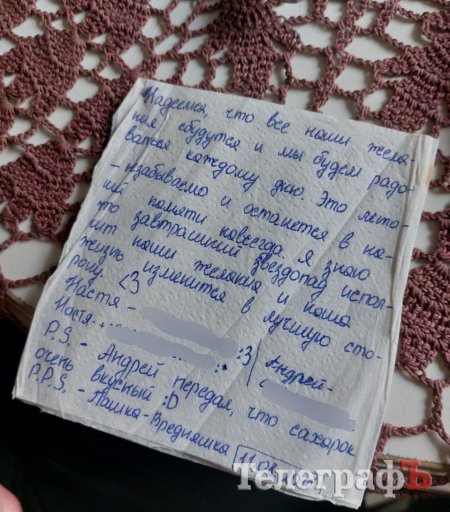 Надеюсь, что все наши жела-
ния сбудутся и мы будем радо-
ваться каждому дню. Это лето-
- незабываемо и останется в на-
шей памяти навсегда. Я знаю
что завтрашний звездопад испол-
нит наши желания и наша
жизнь изменится в лучшую сто-
рону. <3
Настя -
Настя -
:3
Андрей-
P.S. - Андрей передал, что сахарок
очень вкусный :D
P.P.S. - Пашка-Вредняшка
ТелеграфЪ